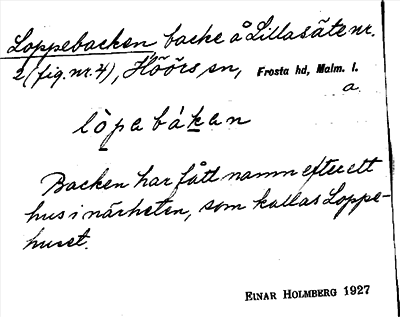 Loppebacken backe å Lillasäte nr.
2 (fig. nr. 4), Höörs sn, Frosta hd, Malm. l.
a.
lòpabákan
Backen har fått namn efter ett
hus i närheten, som kallas Loppe-
huset.
EINAR HOLMBERG 1927